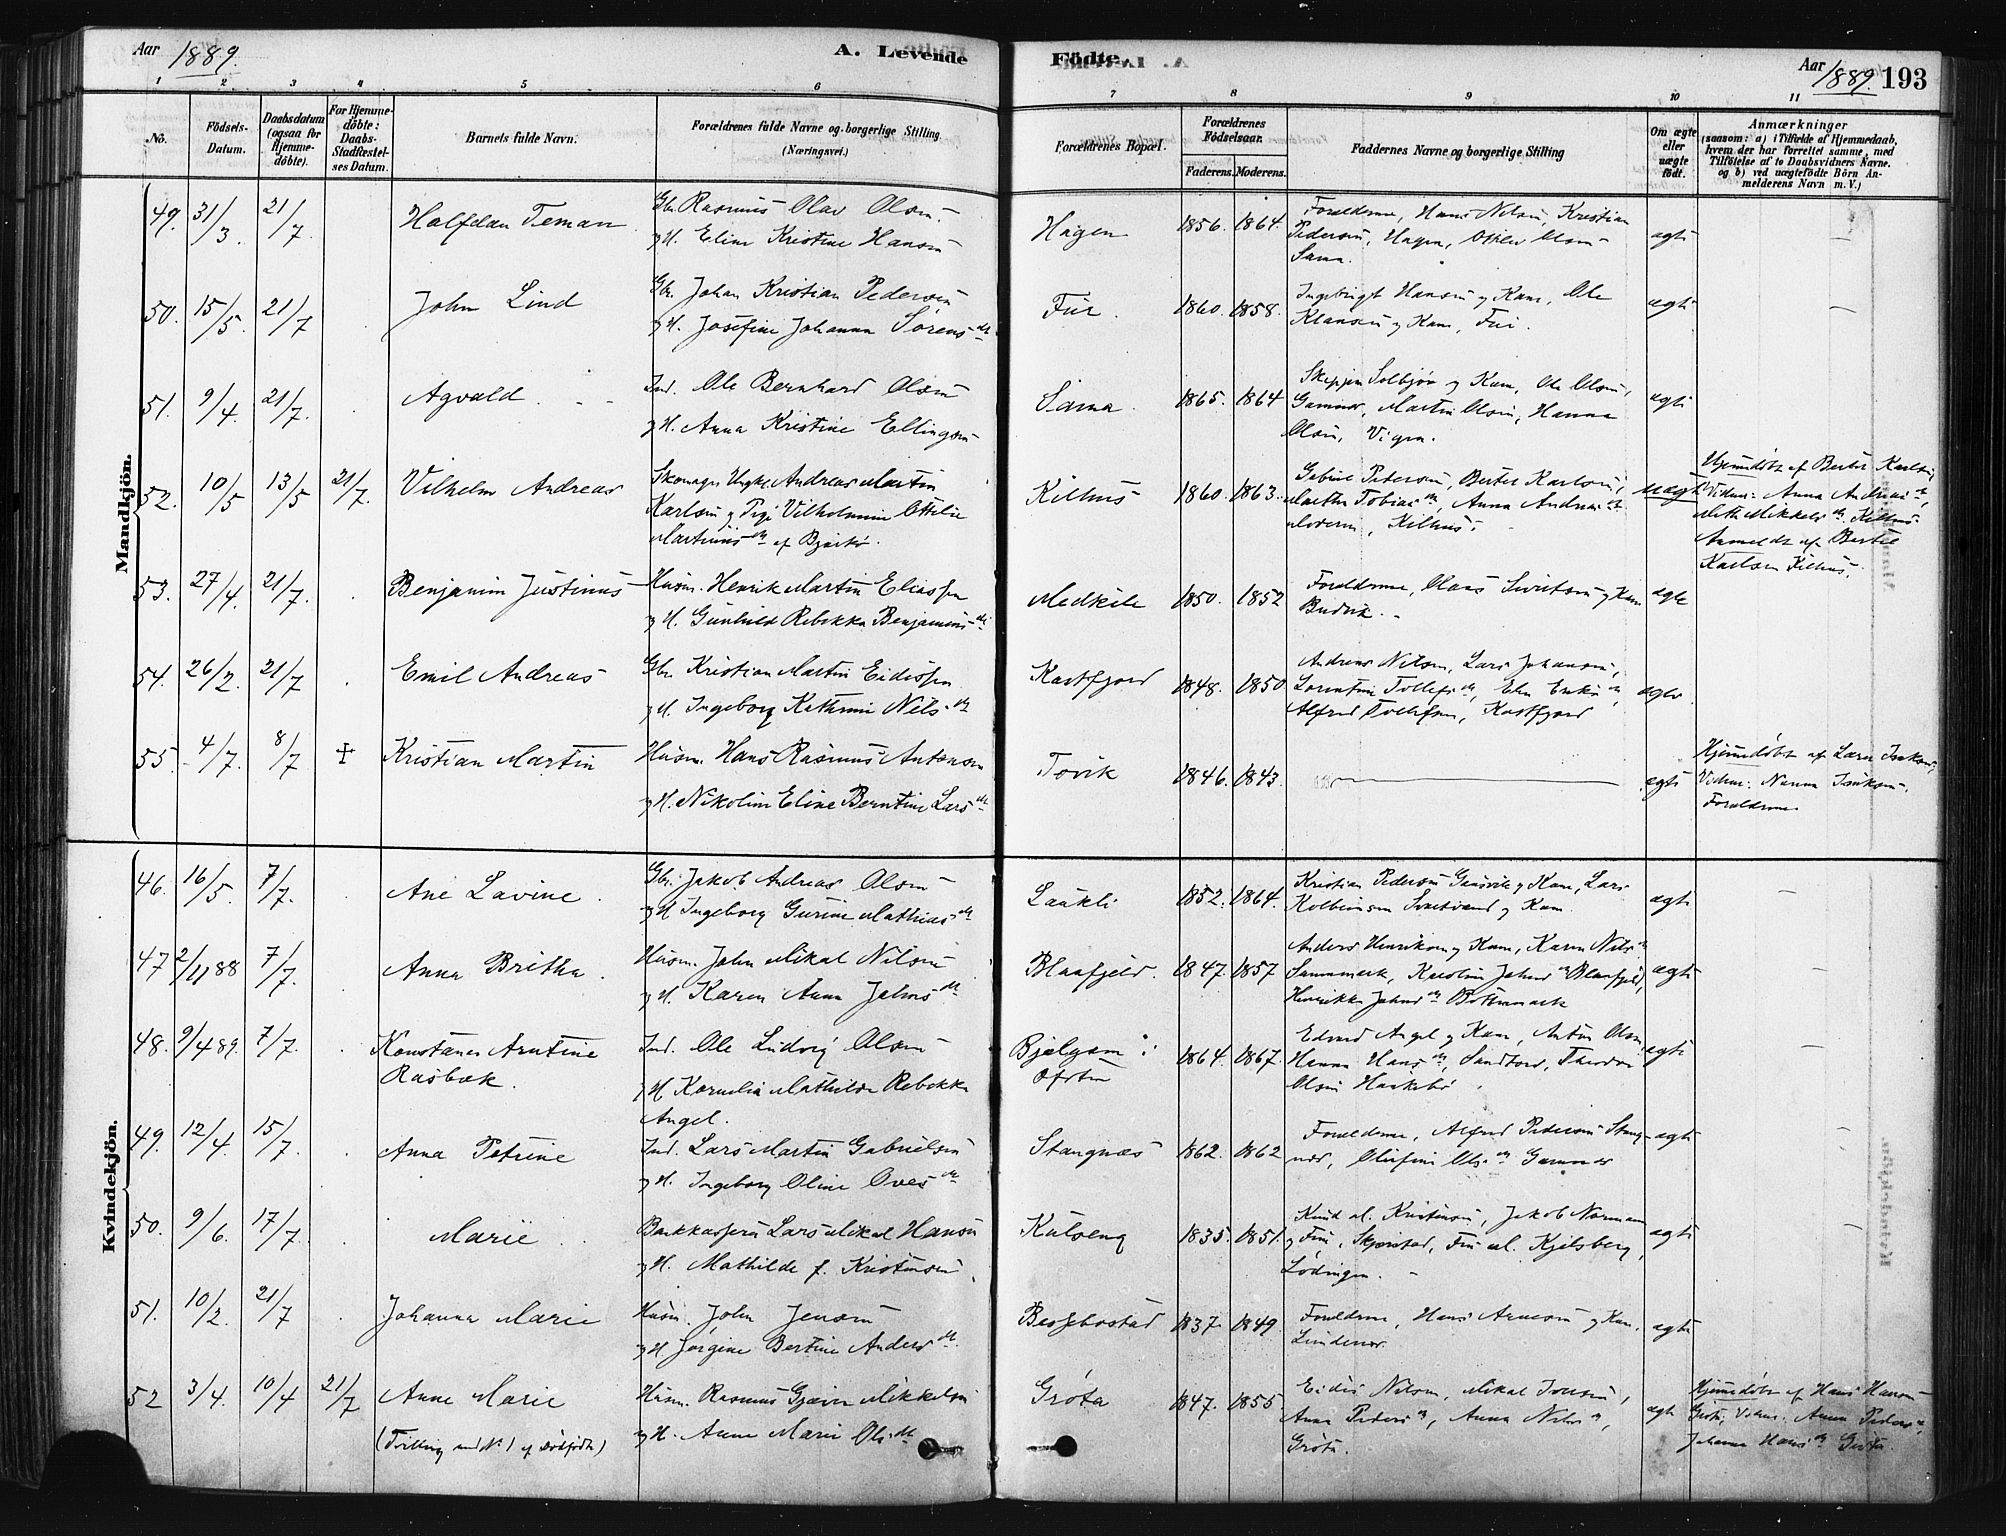 Aar 1889.
A. Levende
Födte
Aar 1889. 193
1 2 3 4 5 6 7 8 9 10 11
No.
Födsels-Datum.
Daabsdatum (ogsaa for Hjemmedöbte).
For Hjemmedöbte: Daabs-Stadfæstelses Datum.
Barnets fulde Navn.
Forældrenes fulde Navne og borgerlige Stilling (Næringsvei.)
Forældrenes Bopæl.
Forældrenes Födselsaar.
Faderens. Moderens.
Faddernes Navne og borgerlige Stilling
Om ægte eller uægte födt.
Anmærkninger
(saasom: a) i Tilfælde af Hjemmedaab, hvem der har forrettet samme, med Tilföielse af to Daabsvidners Navne. og b) ved uægtefödte Börn Anmelderens Navn m. V.)
Mandkjön.
49. 31/3 21/7 Halfdan Teman Gbr. Rasmus Olav Olsen Hagen 1856. 1864. Forældrene, Hans Nilsen, Kristian
og H. Eline Kristine Hansen Pedersen, Hagen, Olsen ægte —
Sama.
50. 15/5. 21/7 John Lind Gbr. Johan Kristian Pedersen Fur. 1860. 1858. Ingebrigt Hansen og Kone, Ole ægte —
og H. Josefine Johanna Sørensdtr Klausen og Kone, Fur.
51. 9/4. 21/7. Agvald Ind. Ole Bernhard Olsen Sama. 1865. 1864 Skipper Solbjør og Kone, Ole Olsen, ægte
og H. Anna Kristine Ellingsen Gamnes, Martin Olsen, Hanna
Olsen, Vigen.
52. 10/5 13/5 21/7. Vilhelm Andreas Skomager Ungk. Andreas Martin Kilhus 1860. 1863. Pedersen, Bertel Karlsen, uægte Hjemmedøbt af Bertel Karlsen,
Karlsen og Pige Vilhelmine Ottilie Marthe Tobiasdtr, Anna Vidner: Anna
Martinusdtr af Bjarkø. Moderen, Kilhus. Mikkelsdtr Kilhus.
Anmeldt af Bertel
Karlsen Kilhus.
53. 27/4. 21/7. Benjamin Justinus Husm. Henrik Martin Eliassen Medkile 1850. 1852 Forældrene, Sivertsen og Kone ægte
og H. Gunhild Rebekka Benjaminsdtr Budvik.
54. 26/2. 21/7 Emil Andreas Gbr. Kristian Martin Eidissen Kastfjord 1848. 1850 Andreas Nilsen, Lars Johansen,
og H. Ingeborg Kathrine Nilsdtr Lorentine Tollefsdtr, Elen Eriksdtr, ægte
Alfred Tollefsen, Kastfjord
55. 4/7. 8/7 ‡ Kristian Martin Husm. Hans Rasmus Antonsen Tovik 1846. 1843. — ægte Hjemmedøbt af Lars Isaksen,
og H. Nikoline Eline Berntine Larsdtr Vidner: Nanna Isaksen,
Forældrene
Kvindekjön.
46. 16/5. 7/7. Ane Lavine Gbr. Jakob Andreas Olsen Laukli 1852. 1864. Kristian Pedersen Gausvik og Kone, Lars ægte —
og H. Ingeborg Gurine Mathiasdtr Kolbeinsen Svartvand og Kone
47 2/11 88 7/7. Anna Britha Husm. John Mikal Nilsen Blaafjeld. 1847. 1857 Anders Henriksen og Kone, Karen Nilsdtr ægte —
og H. Karen Anna Johnsdtr Sammark, Karoline Johnsdtr Blaafjeld,
Henrikke Johnsdtr Bottenmark
48. 9/4 89. 7/7. Konstance Arntine Ind. Ole Ludvig Olsen Bjelgam i 1864. 1867. Edvard Angel og Kone, Anton Olsen, ægte —
Rasbæk. og H. Kornelia Mathilde Rebekka Ofoten Hanna Hansdtr, Sandtorv, Theodor
Angel. Olsen
49. 12/4. 15/7. Anna Petrine Ind. Lars Martin Gabrielsen Stangnæs 1862. 1862 Forældrene, Alfred Pedersen Stang- ægte —
og H. Ingeborg Oline Ovesdtr næs, Olufine Olsdtr Gamnes
50. 9/6. 17/7. Marie Lars Mikal Hansen Kulseng 1835. 1851. Knud M. Kristensen, Jakob Norman ægte —
og H. Mathilde f. Kristensen. og Fru, Skjerstad, Fru M. Kjelsberg,
Lødingen.
51. 10/2. 21/7 Johanna Marie Husm. John Jensen Bessebostad 1837. 1849. Forældrene, Hans Arnesen og Kone, ægte
og H. Jørgine Bertine Andersdtr.
52 3/4. 10/4 21/7 Anne Marie Husm. Rasmus Gjæver Mikkelsen Grøta 1847. 1855 Eidis Nilsen, Mikal ægte Hjemmedøbt af Hans Hansen
(Tvilling med No 1 af Dødfødte) og H. Anne Marie Olsdtr Anna Pedersdtr, Anna Nilsdtr, Grøta, Vidner: Anna Pedersdtr,
Grøta. Johanna Hansdtr Grøta.